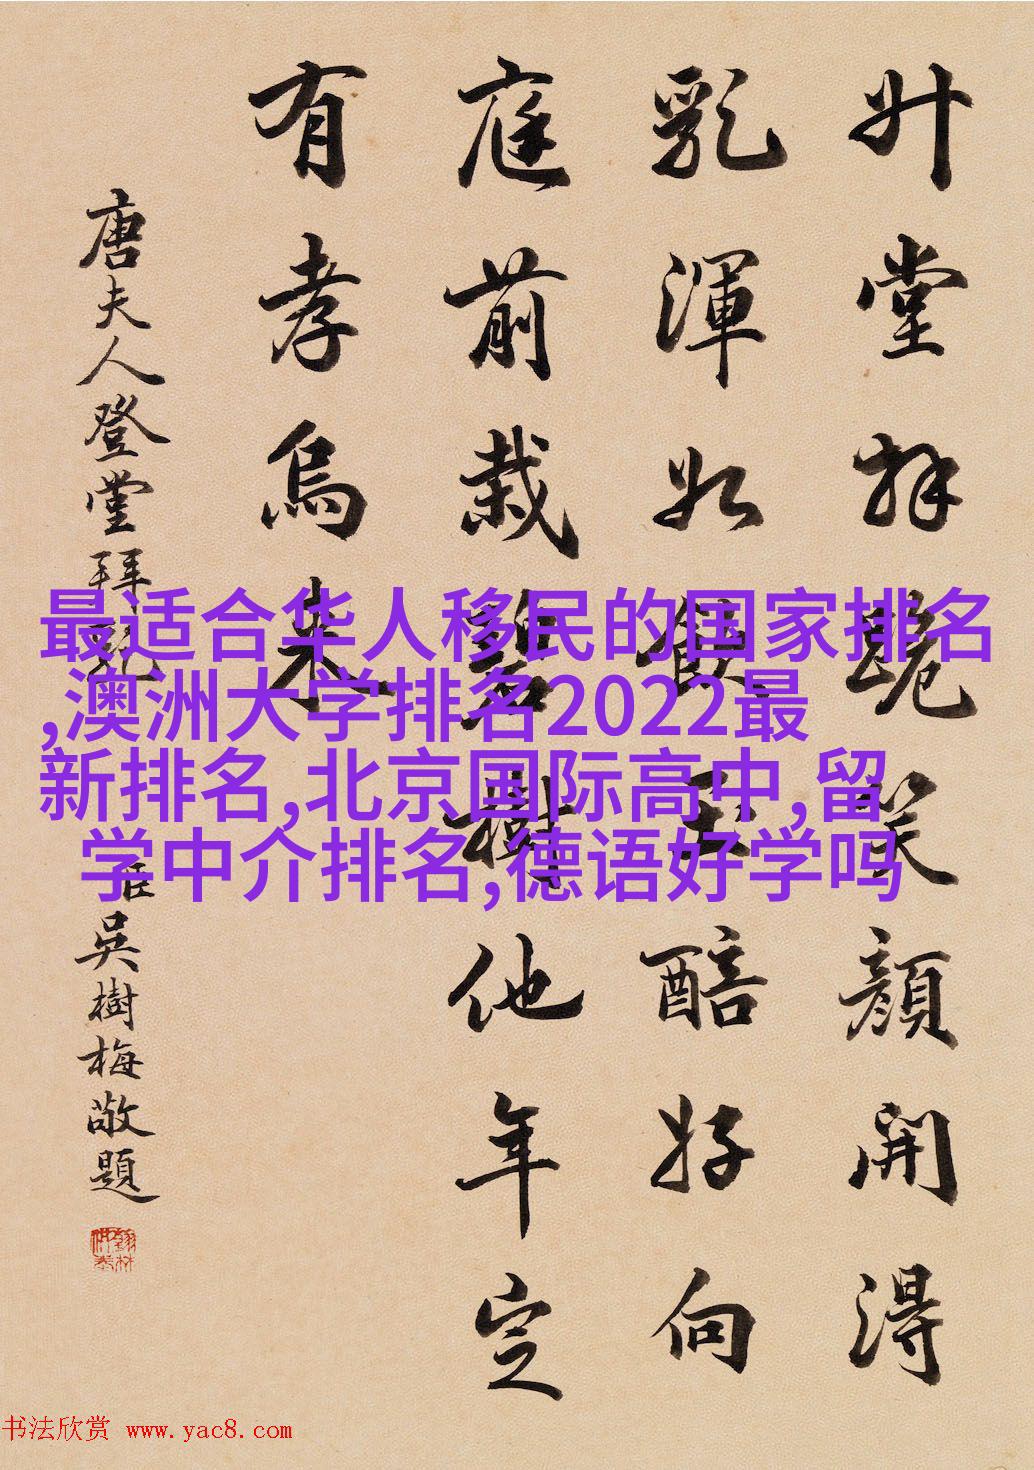 升堂拜跪笑顏開得
乳渾如飲玉醅好向
庭前栽碧樹他年定
有孝烏来
唐夫人登堂拜乳 臣吳樹梅敬題
最适合华人移民的国家排名
,澳洲大学排名2022最
新排名,北京国际高中,留
学中介排名,德语好学吗
书法欣赏 www.yac8.com